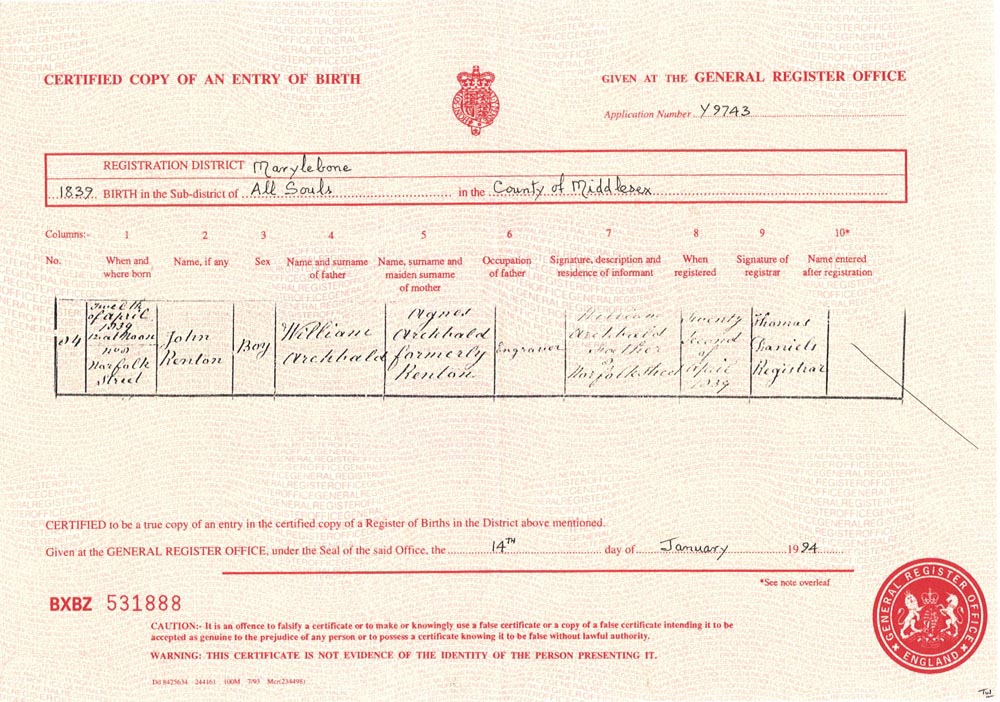 CERTIFIED COPY OF AN ENTRY OF BIRTH
GIVEN AT THE GENERAL REGISTER OFFICE
Application Number Y9743
REGISTRATION DISTRICT Marylebone
1839 BIRTH in the Sub-district of All Souls in the County of Middlesex
Columns:- 1 2 3 4 5 6 7 8 9 10*
No.
When and
where born
Name, if any
Sex
Name and surname
of father
Name, surname and
maiden surname
of mother
Occupation
of father
Signature, description and
residence of informant
When
registered
Signature of
registrar
Name entered
after registration
Twelth
of April
1839
Norfolk
Street
John
Renton
Boy
William
Archbald
Agnes
Archbald
formerly
Renton
Engraver
William
Archbald
Father
Norfolk Street
Twenty
Second
of
April
1839
Thomas
Daniels
Registrar
CERTIFIED to be a true copy of an entry in the certified copy of a Register of Births in the District above mentioned.
Given at the GENERAL REGISTER OFFICE, under the Seal of the said Office, the 14TH day of January 1994
*See note overleaf
BXBZ 531888
CAUTION:- It is an offence to falsify a certificate or to make or knowingly use a false certificate or a copy of a false certificate intending it to be
accepted as genuine to the prejudice of any person or to possess a certificate knowing it to be false without lawful authority.
WARNING: THIS CERTIFICATE IS NOT EVIDENCE OF THE IDENTITY OF THE PERSON PRESENTING IT.
Dd 8425634 244161 100M 7/93 Mcr(234498)
GENERAL REGISTER OFFICE
ENGLAND